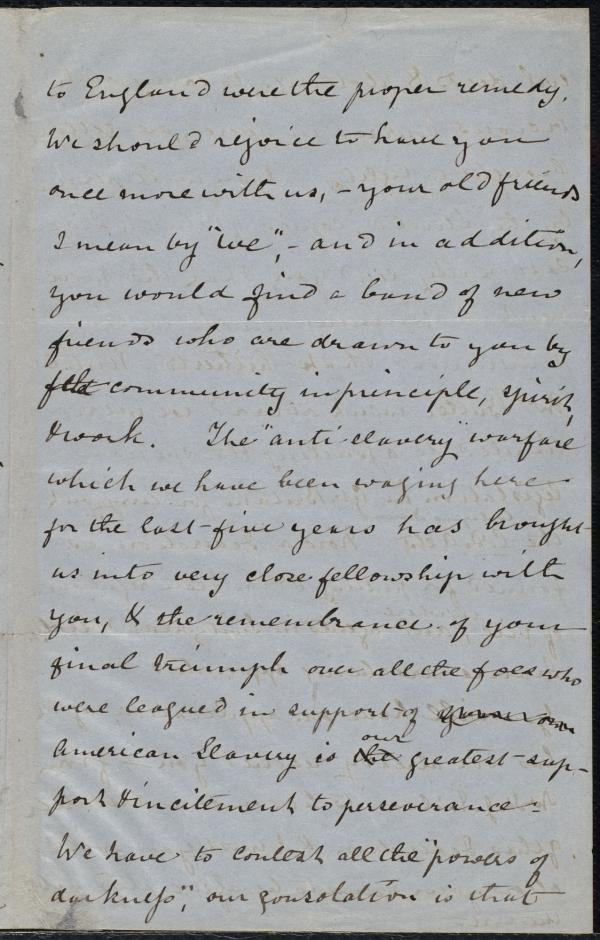 to England were the proper remedy.
We should rejoice to have you
once more with us, - your old friends
I mean by "we", - and in addition,
you would find a band of new
friends who are drawn to you by
community in principle, spirit,
& work. The "anti slavery" warfare
which we have been waging here
for the last five years has brought
us into very close fellowship with
you, & the remembrance of your
final triumph over all the foes who
were leagued in support of
American Slavery is our greatest sup-
port & incitement to perseverance.
We have to contest all the "powers of
darkness", our consolation is that